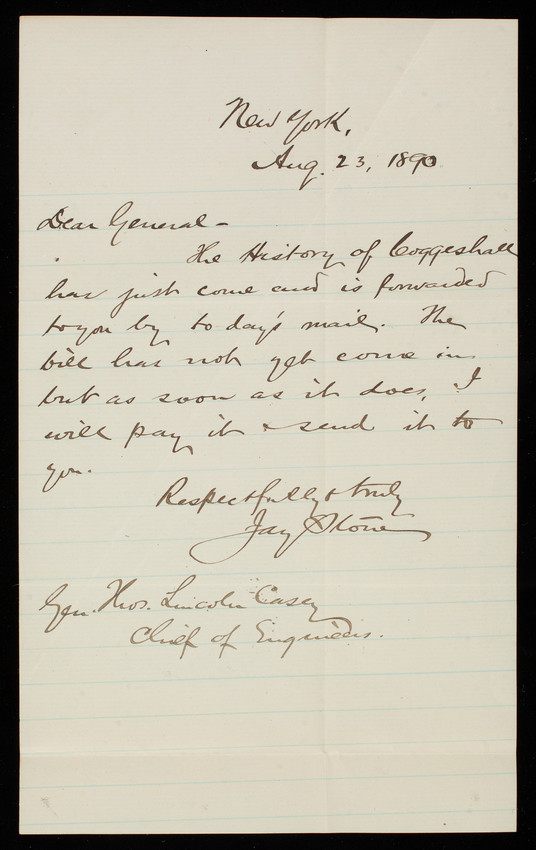 New York,
Aug. 23, 1890
Dear General -
The History of Coggeshall
has just come and is forwarded
to you by to day's mail. The
bill has not yet come in
but as soon as it does, I
will pay it & send it to
you.
Respectfully & truly
Jay Stone
Gen. Thos. Lincoln Casey
Chief of Engineers.